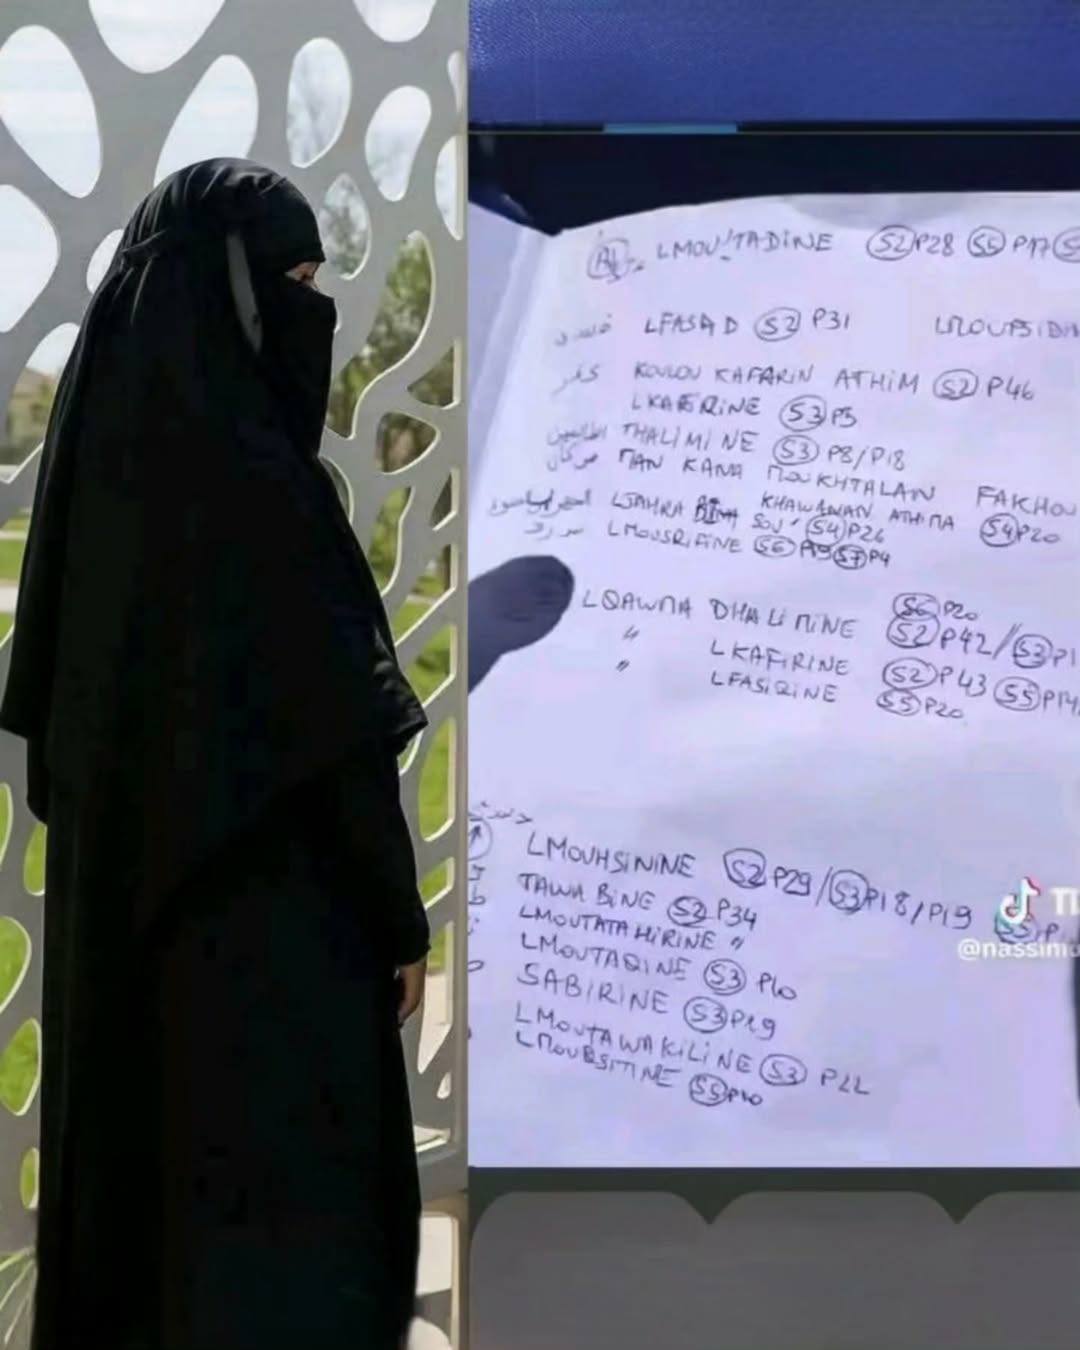 LMOU'TADINE S2 P28 S5 P17
LFASAD S2 P31
كفر KOULOU KAFARIN ATHIM S2 P46
LKAFIRINE S3 P5
الظالمين THALIMINE S3 P8/P18
من كان MAN KANA MOUKHTALAN FAKHOU
KHAWANAN ATHIMA S4 P20
LJAHRA SOU' S4 P26
LMOUSRIFINE S6 P19 S7 P4
LQAWMA DHALIMINE S6 P20
S2 P42 / S3 P1
" LKAFIRINE S2 P43 S5 P14
" LFASIQINE S5 P20
LMOUHSININE S2 P29 / S3 P18 / P19
TAWABINE S2 P34
LMOUTATAHIRINE "
LMOUTAQINE S3 P10
SABIRINE S3 P19
LMOUTAWAKILINE S3 P22
LMOUQSITINE S5 P10
@nassim